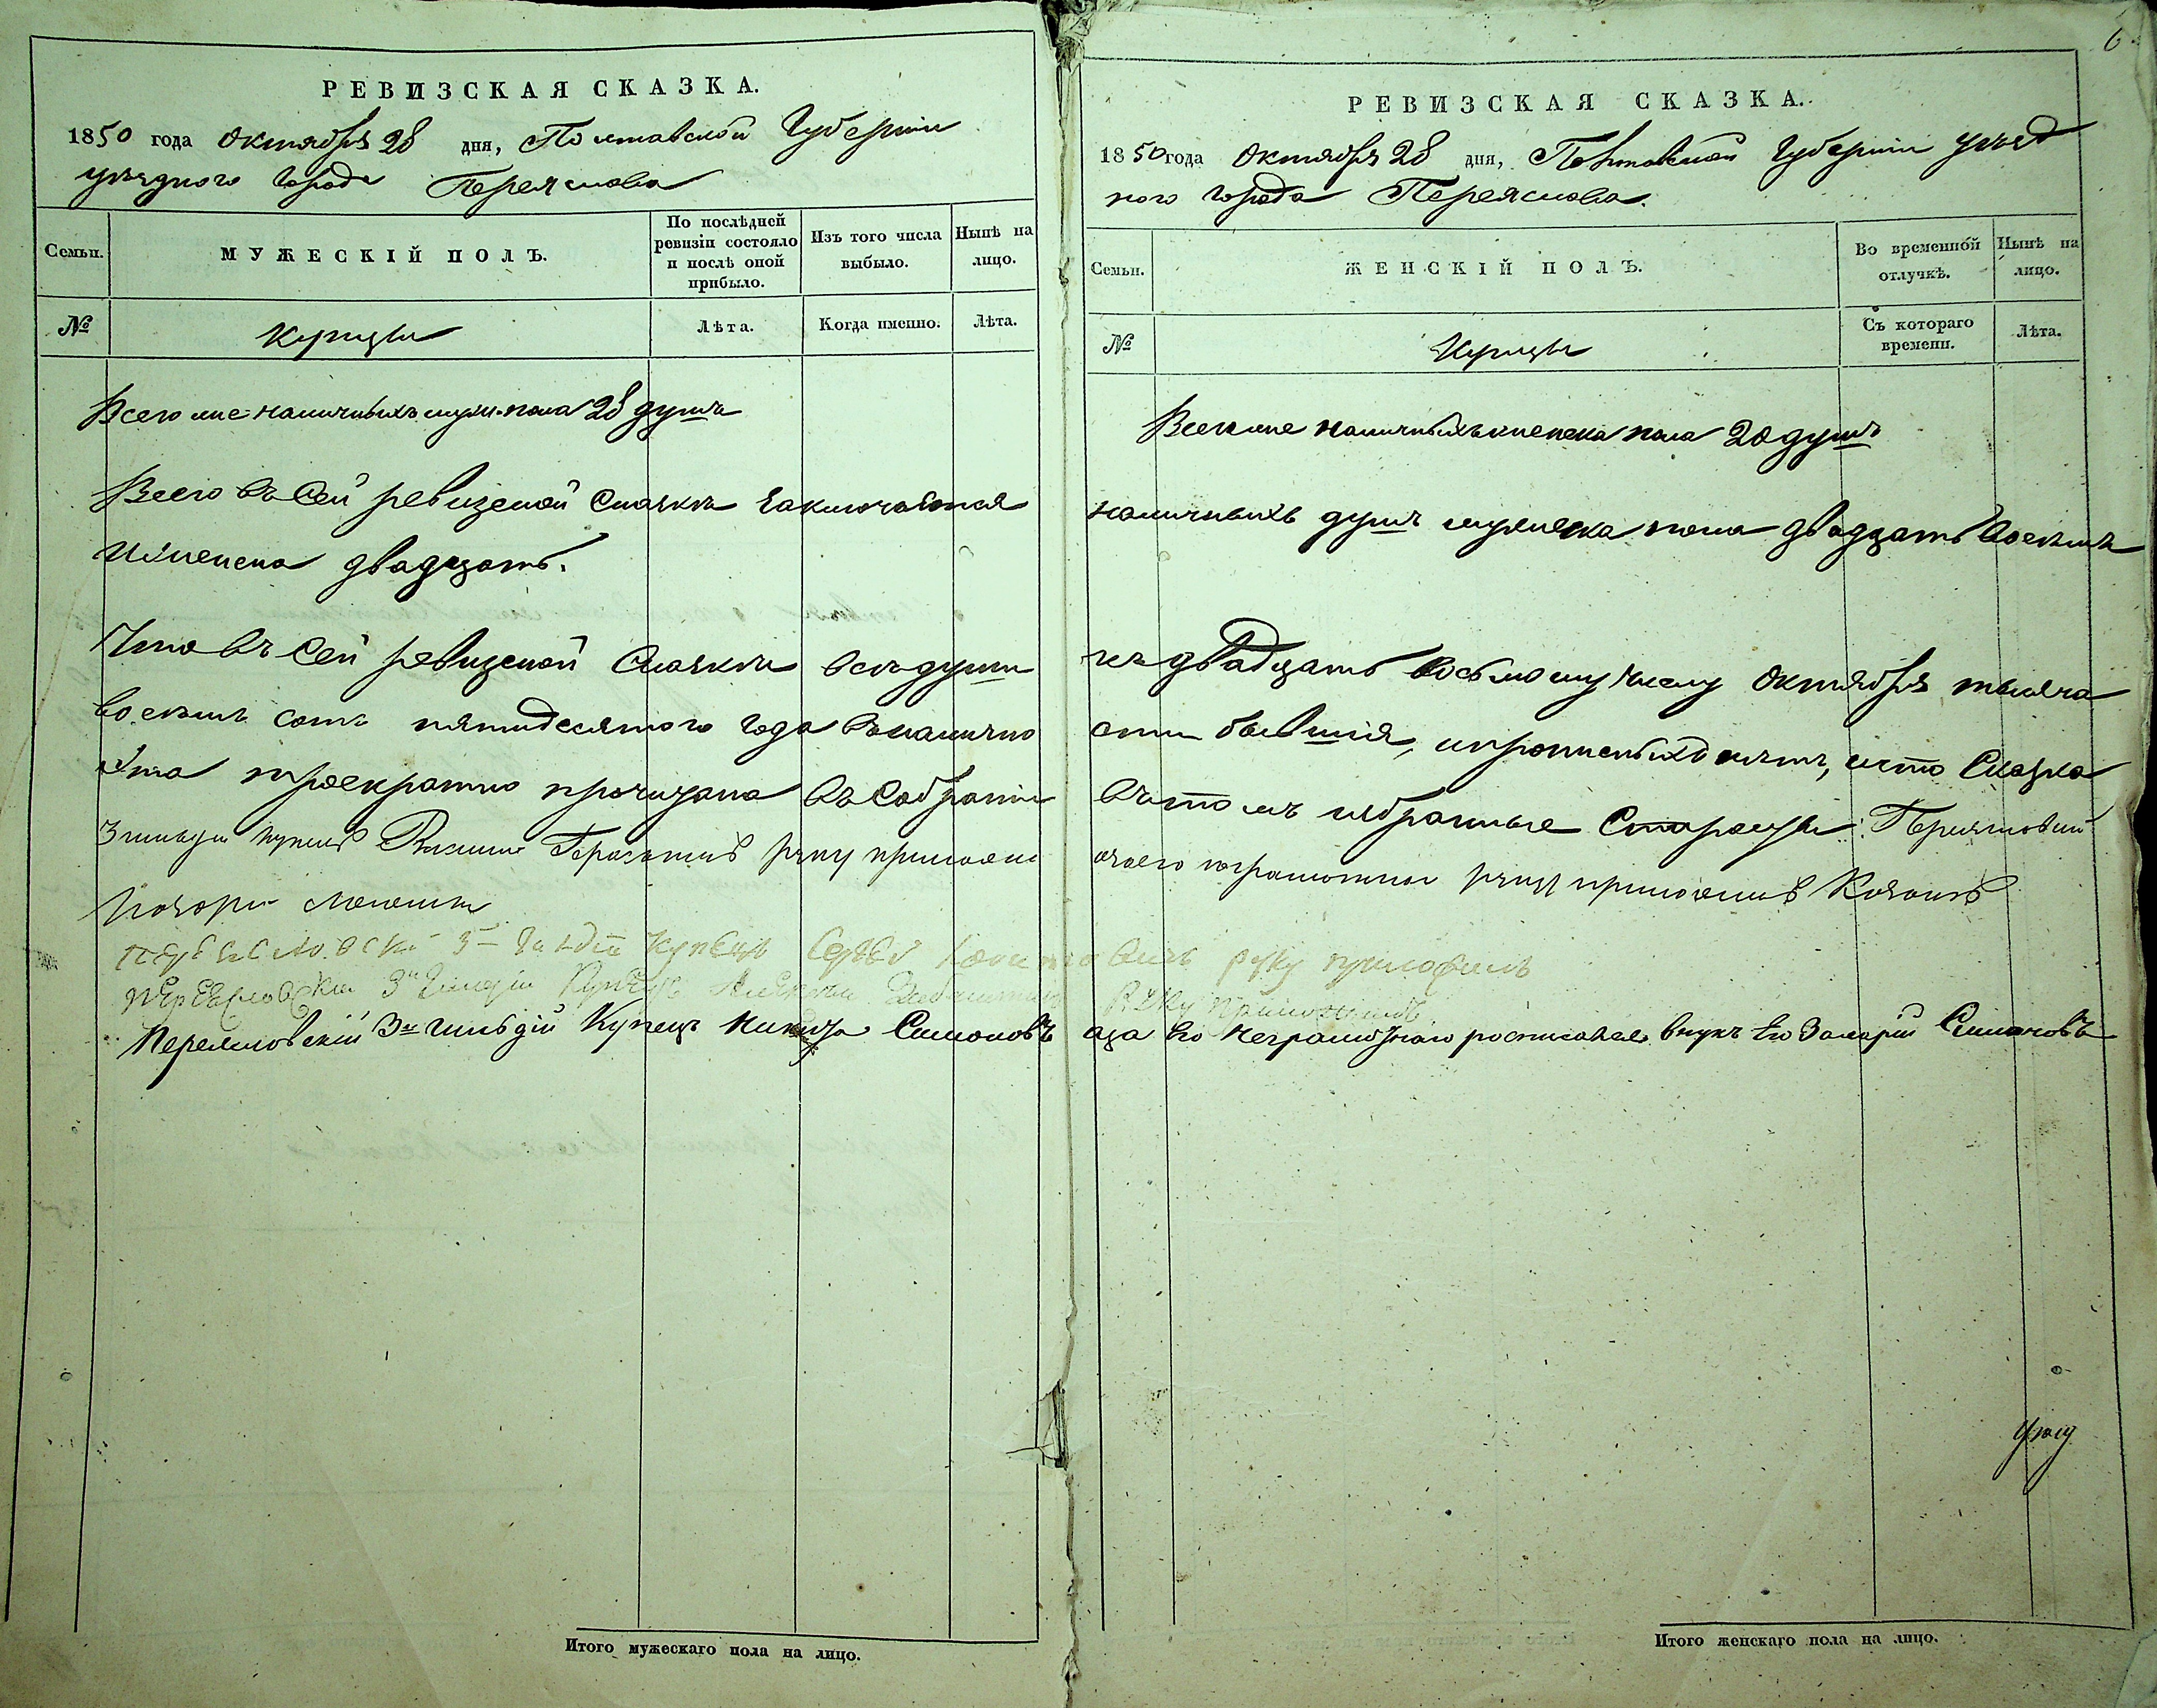 РЕВИЗСКАЯ СКАЗКА.
1850 года Октября 28 дня, Полтавской Губернии
уезднаго города Переяслова
Семьи.
МУЖЕСКІЙ ПОЛЪ.
По послѣдней ревизіи состояло и послѣ оной прибыло.
Изъ того числа выбыло.
Нынѣ на лицо.
№
Купцы
Лѣта.
Когда именно.
Лѣта.
Всего наличныхъ муж. пола 28 душъ
Всего въ Сей ревизской Сказкѣ заключается
Женска двадцать.
Что въ Сей ревизской Сказкѣ всѣ души
восемь сотъ пятидесятого года въ налично
эта троекратно прочитана въ Собраніи
3 гильдіи купецъ руку приложи
Переясловскій 3й гильдіи Купецъ руку приложилъ
Переясловскій 3й Гильдіи Купецъ Руку приложилъ
Переясловскій 3й гильдій Купецъ Никита Симоновъ
Итого мужескаго пола на лицо.
6
РЕВИЗСКАЯ СКАЗКА.
1850 года Октября 28 дня, Полтавской Губерніи уезд
ного города Переяслова.
Семьи.
ЖЕНСКІЙ ПОЛЪ.
Во временной отлучкѣ.
Нынѣ на лицо.
№
Купцы
Съ котораго времени.
Лѣта.
наличныхъ женска пола 20 душъ
наличныхъ душъ мужеска пола двадцать восемь
къ двадцать восьмому числу Октября тысяча
сти бывшія, и что Сказка
въ томъ избранные Старосты: Переясловскій
руку приложилъ
за его неграмотнаго росписался внукъ Его Захарій Симоновъ
Итого женскаго пола на лицо.